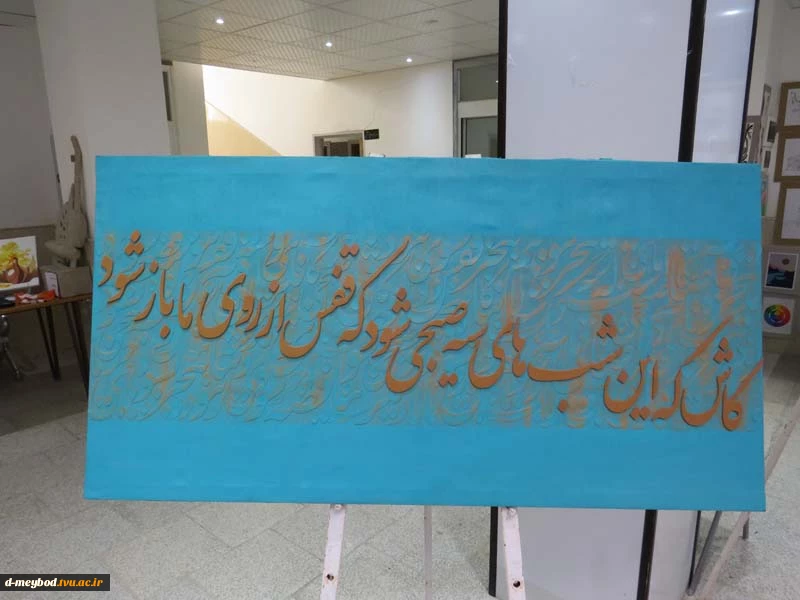 کاش که این شب های سیه صبحی شود که قفس از روی ما باز شود
d-meybod.tvu.ac.ir